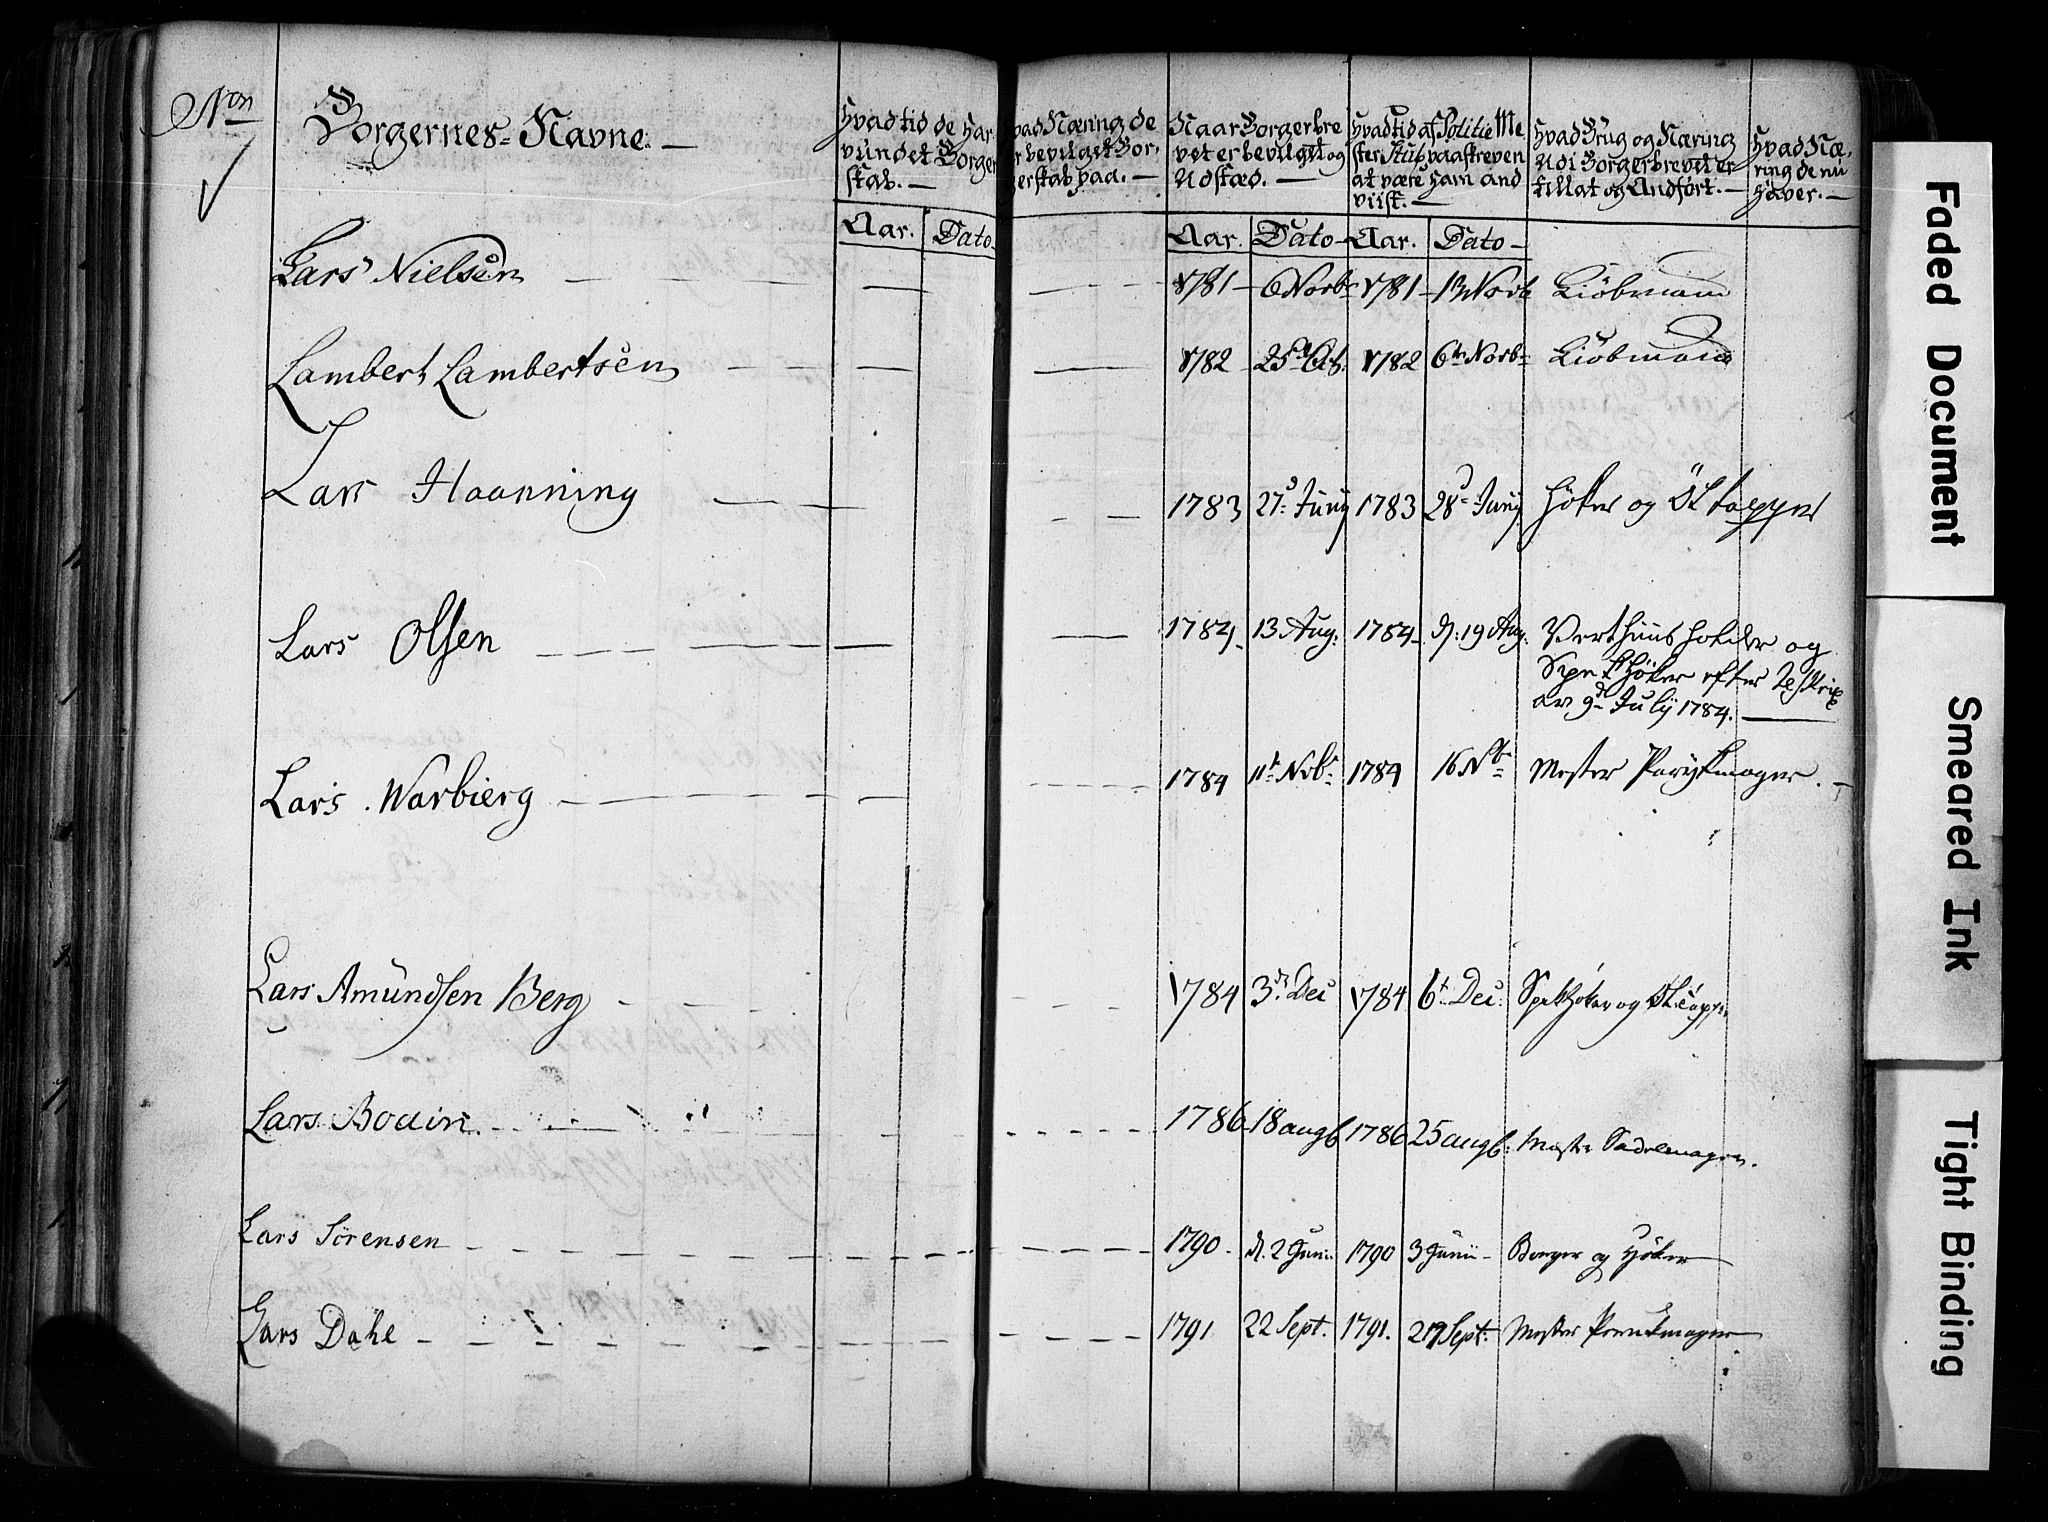 Non
Borgernes Navne. —
Hvad tid de har
vundet Borger
skab. —
Aar. Dato
vad Næring de
er bevilget Bor,
gerskab paa. —
Naar Borgerbre
vet er bevilget og
Udstæd. —
Aar. Dato —
Hvad Tid af Politie Me
ster Stub paaskreven
at være ham and
viist. —
Aar. Dato —
Hvad Brug og Næring
Udi Borgerbrevet er
tillat og Andført. —
Hvad Næ,
ring de nu
haver. —
Lars Nielsen — — — — — 1781 — 6 Novbr 1781 — 13 Novb Kiöbmand
Lambert Lambertsen — — — — 1782 25 Oct. 1782 6te Novbr Kiöbmand
Lars Haanning — — — — 1783 27de Junij 1783 28de Junij Höker og Öltapper
Lars Olsen — — — — — 1784 13 Aug. 1784 d: 19 Aug. Verthuus holder og
Spekhöker efter Reskrip
av 9de Julij 1784. —
Lars Warbierg — — — — 1784 11te Nobr 1784 16 Nbr Mester Parykmager. —
Lars Amundsen Berg — — — — 1784 3de Dec 1784 6te Dec: Spekhöker og Öltapper
Lars Bodin. — — — — 1786 18 augb 1786 25 augb: Mester Sadelmager.
Lars Sörensen — — — — 1790 d. 2 Junii 1790 3 Junii — Borger og Höker
Lars Dahl — — — — 1791 22 Sept. 1791. 27 Sept: Mester Peruckmager
Faded Document
Smeared Ink
Tight Binding